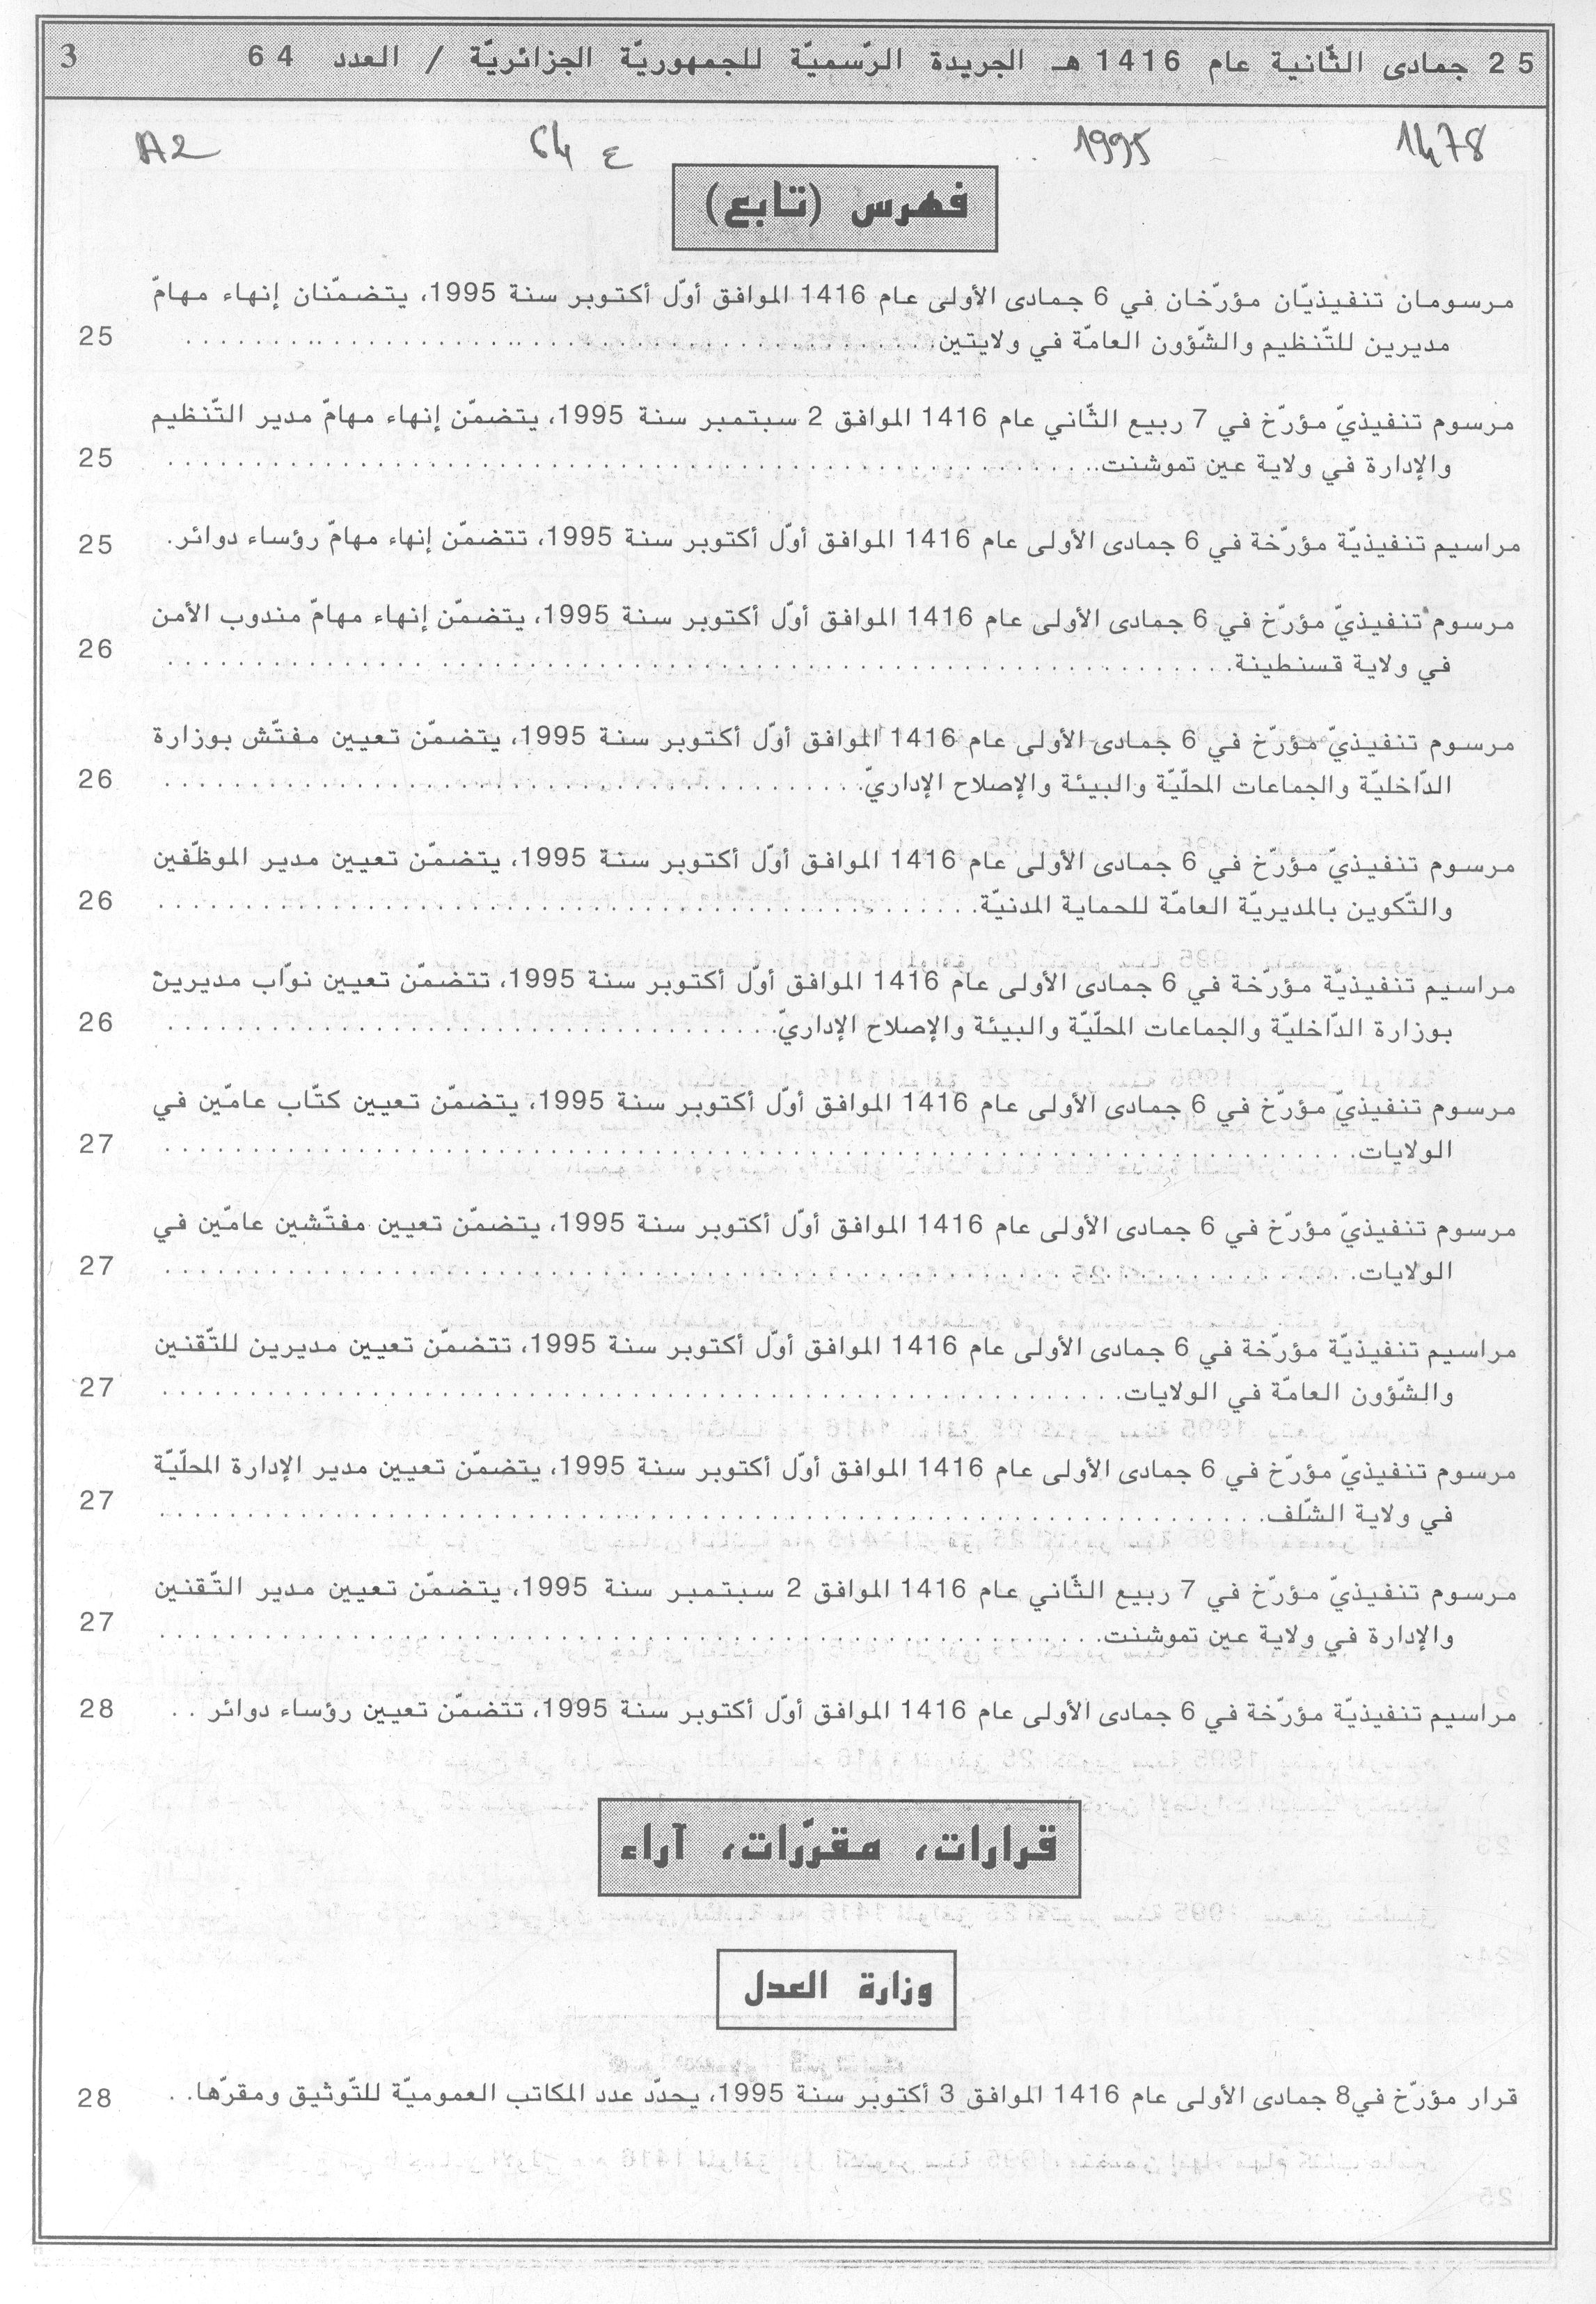 25 جمادى الثّانية عام 1416 هـ الجريدة الرّسميّة للجمهوريّة الجزائريّة / العدد 64 3
1478 1995 ع 64 A2
فهرس (تابع)
مرسومان تنفيذيّان مؤرّخان في 6 جمادى الأولى عام 1416 الموافق أوّل أكتوبر سنة 1995، يتضمّنان إنهاء مهامّ
مديرين للتّنظيم والشّؤون العامّة في ولايتين. 25
مرسوم تنفيذيّ مؤرّخ في 7 ربيع الثّاني عام 1416 الموافق 2 سبتمبر سنة 1995، يتضمّن إنهاء مهامّ مدير التّنظيم
والإدارة في ولاية عين تموشنت. 25
مراسيم تنفيذيّة مؤرّخة في 6 جمادى الأولى عام 1416 الموافق أوّل أكتوبر سنة 1995، تتضمّن إنهاء مهامّ رؤساء دوائر. 25
مرسوم تنفيذيّ مؤرّخ في 6 جمادى الأولى عام 1416 الموافق أوّل أكتوبر سنة 1995، يتضمّن إنهاء مهامّ مندوب الأمن
في ولاية قسنطينة. 26
مرسوم تنفيذيّ مؤرّخ في 6 جمادى الأولى عام 1416 الموافق أوّل أكتوبر سنة 1995، يتضمّن تعيين مفتّش بوزارة
الدّاخليّة والجماعات المحلّيّة والبيئة والإصلاح الإداريّ. 26
مرسوم تنفيذيّ مؤرّخ في 6 جمادى الأولى عام 1416 الموافق أوّل أكتوبر سنة 1995، يتضمّن تعيين مدير الموظّفين
والتّكوين بالمديريّة العامّة للحماية المدنيّة. 26
مراسيم تنفيذيّة مؤرّخة في 6 جمادى الأولى عام 1416 الموافق أوّل أكتوبر سنة 1995، تتضمّن تعيين نوّاب مديرين
بوزارة الدّاخليّة والجماعات المحلّيّة والبيئة والإصلاح الإداريّ. 26
مرسوم تنفيذيّ مؤرّخ في 6 جمادى الأولى عام 1416 الموافق أوّل أكتوبر سنة 1995، يتضمّن تعيين كتّاب عامّين في
الولايات. 27
مرسوم تنفيذيّ مؤرّخ في 6 جمادى الأولى عام 1416 الموافق أوّل أكتوبر سنة 1995، يتضمّن تعيين مفتّشين عامّين في
الولايات. 27
مراسيم تنفيذيّة مؤرّخة في 6 جمادى الأولى عام 1416 الموافق أوّل أكتوبر سنة 1995، تتضمّن تعيين مديرين للتّقنين
والشّؤون العامّة في الولايات. 27
مرسوم تنفيذيّ مؤرّخ في 6 جمادى الأولى عام 1416 الموافق أوّل أكتوبر سنة 1995، يتضمّن تعيين مدير الإدارة المحلّيّة
في ولاية الشّلف. 27
مرسوم تنفيذيّ مؤرّخ في 7 ربيع الثّاني عام 1416 الموافق 2 سبتمبر سنة 1995، يتضمّن تعيين مدير التّقنين
والإدارة في ولاية عين تموشنت. 27
مراسيم تنفيذيّة مؤرّخة في 6 جمادى الأولى عام 1416 الموافق أوّل أكتوبر سنة 1995، تتضمّن تعيين رؤساء دوائر . . 28
قرارات، مقرّرات، آراء
وزارة العدل
قرار مؤرّخ في8 جمادى الأولى عام 1416 الموافق 3 أكتوبر سنة 1995، يحدّد عدد المكاتب العموميّة للتّوثيق ومقرّها. . 28